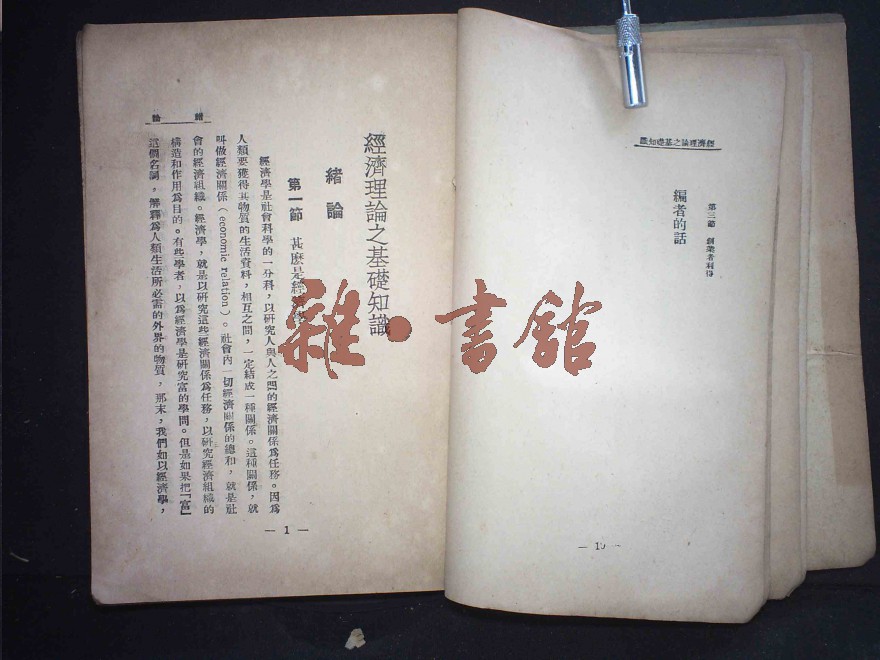 經濟理論之基礎知識
第三節 創業者利得
編者的話
— 10 —
緒論
經濟理論之基礎知識
緒論
第一節 甚麼是經濟學
經濟學是社會科學的一分科，以研究人與人之間的經濟關係為任務。因為
人類要獲得其物質的生活資料，相互之間，一定結成一種關係。這種關係，就
叫做經濟關係（economic relation）。社會內一切經濟關係的總和，就是社
會的經濟組織。經濟學，就是以研究這些經濟關係為任務，以研究經濟組織的
構造和作用為目的。有些學者，以為經濟學是研究富的學問。但是如果把「富」
這個名詞，解釋為人類生活所必需的外界的物質，那末，我們如以經濟學，
— 1 —
雜·書館